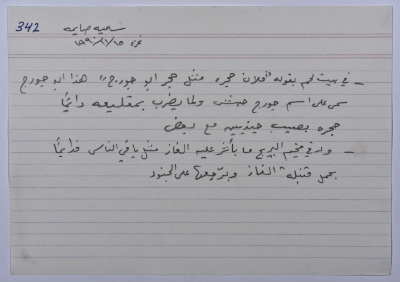 342
سامية صايمه
غزة ١٩٩٠/١/١٥
- في بيت لحم بقولوا "فلان حجره مثل حجر ابو جورج"، هذا ابو جورج
سمى على اسم جورج حبش ولما يضرب بمقليعه دائماً
حجره بصيب جنديين مع بعض
- ولد في مخيم البريج ما بأثر عليه الغاز مثل باقي الناس فدائماً
بحمل قنبلة الغاز وبرجعها على الجنود